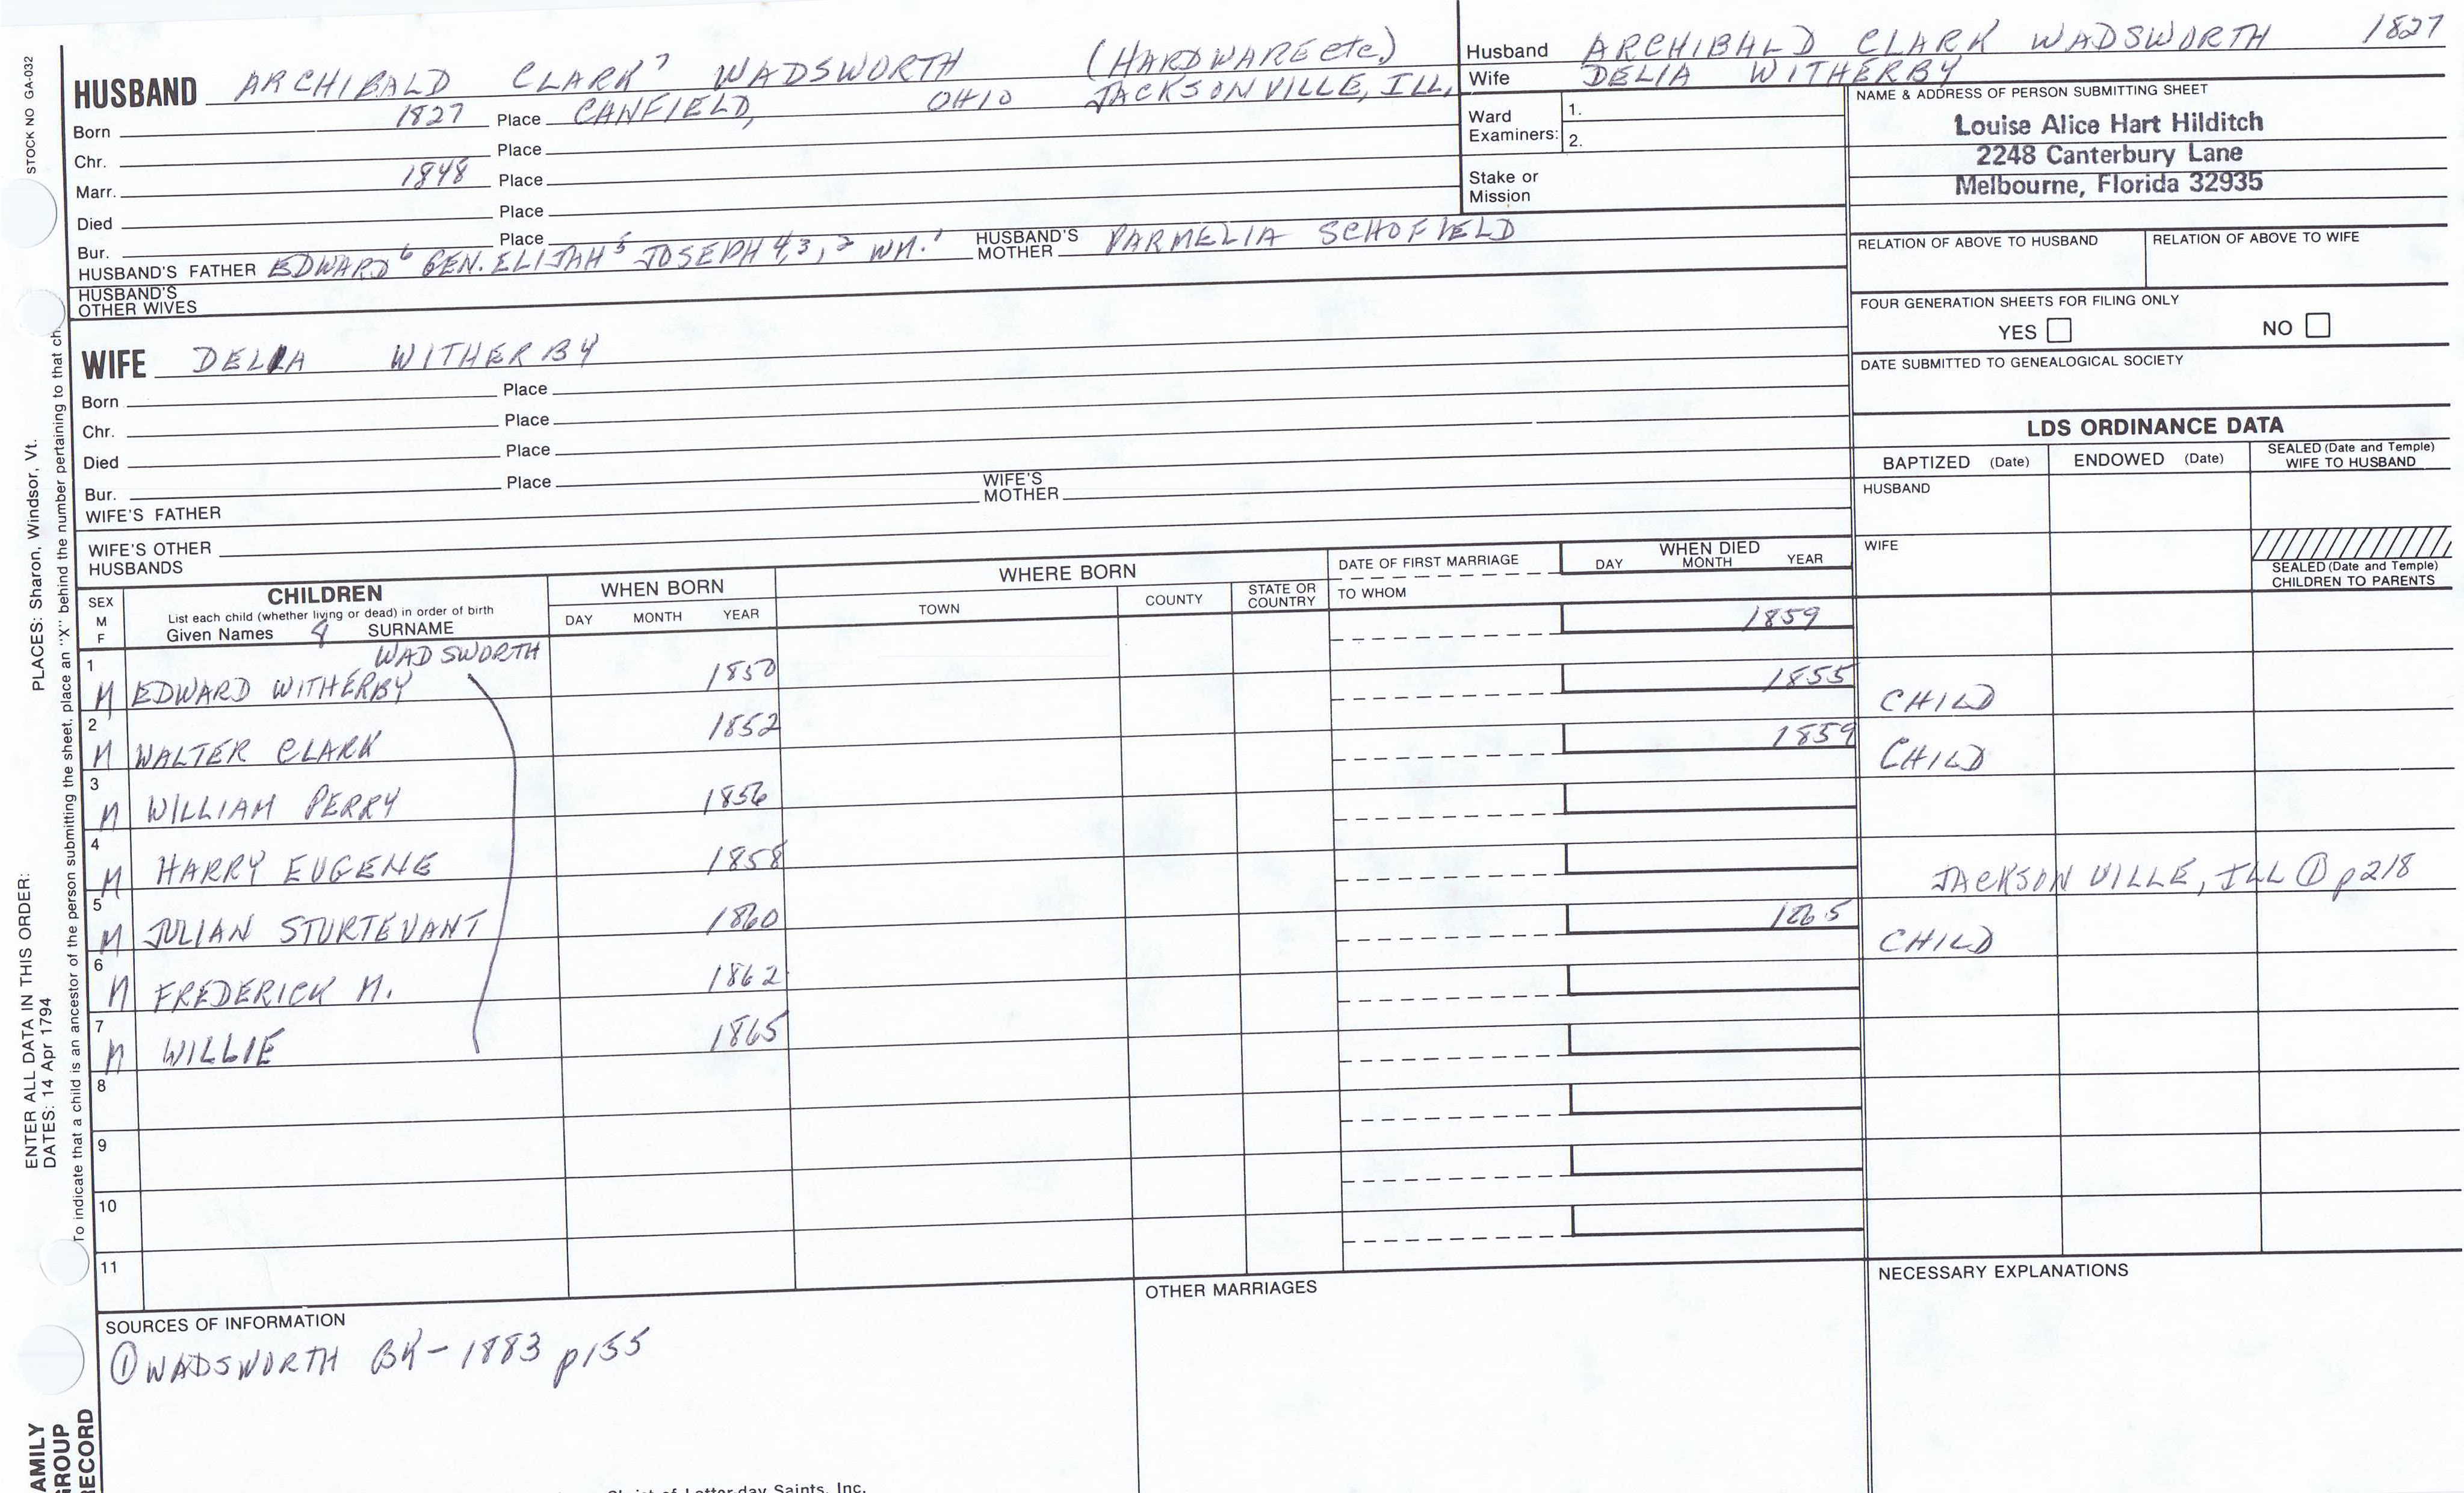 STOCK NO GA-032
HUSBAND ARCHIBALD CLARK7 WADSWORTH (HARDWARE etc.)
Born 1827 Place CANFIELD, OHIO JACKSONVILLE, ILL,
Chr. Place
Marr. 1848 Place
Died Place
Bur. Place
HUSBAND'S FATHER EDWARD6 GEN. ELIJAH5 JOSEPH 4,3,2 WM.1 HUSBAND'S MOTHER PARMELIA SCHOFIELD
HUSBAND'S OTHER WIVES
WIFE DELIA WITHERBY
Born Place
Chr. Place
Died Place
Bur. Place
WIFE'S FATHER WIFE'S MOTHER
WIFE'S OTHER HUSBANDS
Husband ARCHIBALD CLARK WADSWORTH 1827
Wife DELIA WITHERBY
Ward Examiners: 1.
2.
Stake or Mission
NAME & ADDRESS OF PERSON SUBMITTING SHEET
Louise Alice Hart Hilditch
2248 Canterbury Lane
Melbourne, Florida 32935
RELATION OF ABOVE TO HUSBAND RELATION OF ABOVE TO WIFE
FOUR GENERATION SHEETS FOR FILING ONLY
YES NO
DATE SUBMITTED TO GENEALOGICAL SOCIETY
LDS ORDINANCE DATA
BAPTIZED (Date) ENDOWED (Date) SEALED (Date and Temple) WIFE TO HUSBAND
HUSBAND
WIFE
SEALED (Date and Temple) CHILDREN TO PARENTS
SEX M F
CHILDREN
List each child (whether living or dead) in order of birth
Given Names SURNAME
WHEN BORN
DAY MONTH YEAR
WHERE BORN
TOWN COUNTY STATE OR COUNTRY
DATE OF FIRST MARRIAGE
TO WHOM
WHEN DIED
DAY MONTH YEAR
WADSWORTH
1 M EDWARD WITHERBY 1850 1859
2 M WALTER CLARK 1852 1855 CHILD
3 M WILLIAM PERRY 1856 1859 CHILD
4 M HARRY EUGENE 1858
5 M JULIAN STURTEVANT 1860 JACKSONVILLE, ILL ① p218
6 M FREDERICK M. 1862 1865 CHILD
7 M WILLIE 1865
8
9
10
11
SOURCES OF INFORMATION
① WADSWORTH BK - 1883 p155
OTHER MARRIAGES
NECESSARY EXPLANATIONS
ENTER ALL DATA IN THIS ORDER:
DATES: 14 Apr 1794 PLACES: Sharon, Windsor, Vt.
To indicate that a child is an ancestor of the person submitting the sheet, place an "X" behind the number pertaining to that ch
AMILY
GROUP
RECORD
Saints, Inc.